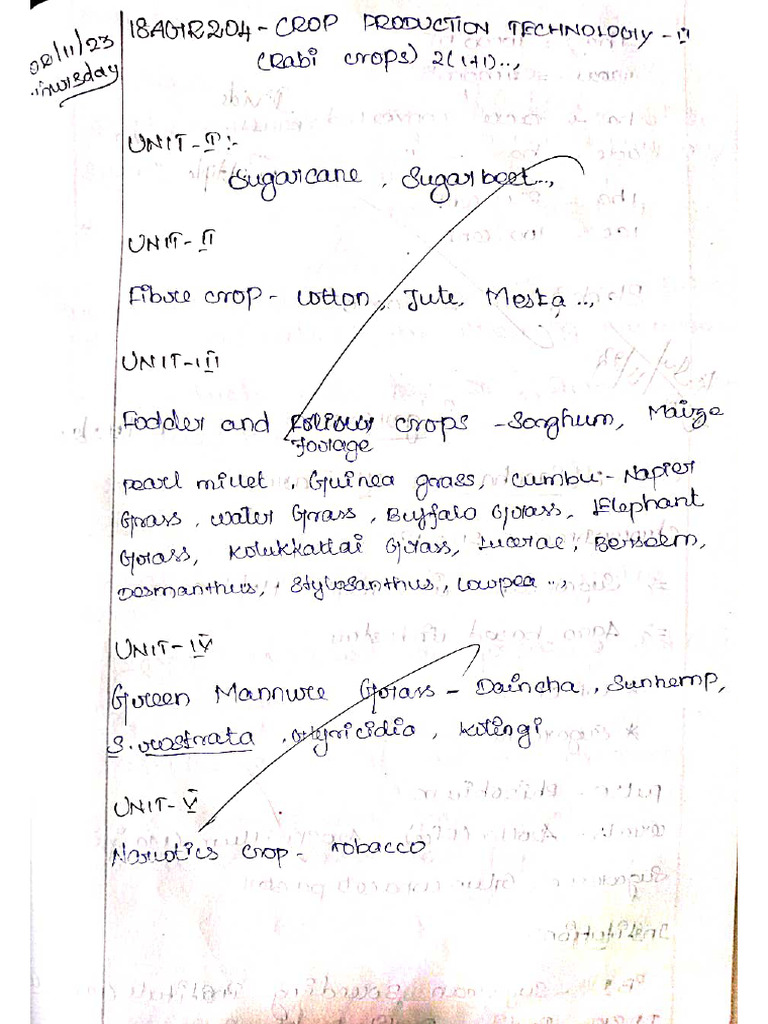 02/11/23
Thursday
18AGR204 - CROP PRODUCTION TECHNOLOGY - II
(Rabi crops) 2(1+1)..,
UNIT - I :-
Sugarcane, Sugarbeet..,
UNIT - II
Fibure crop - cotton, Jute, Mesta ..,
UNIT - III
Fodder and crops - Sorghum, Maize
foorage
pearl millet, Guinea grass, Cumbu - Napier
Grass, water Grass, Buffalo Grass, Elephant
Grass, Kolukkattai Grass, Lucerae, Berseem,
Desmanthus, Stylosanthus, Cowpea ..,
UNIT - IV
Green Mannure Grass - Daincha, Sunhemp,
S. rostrata, Glyricidia, Kolingi
UNIT - V
Narcotics crop - tobacco